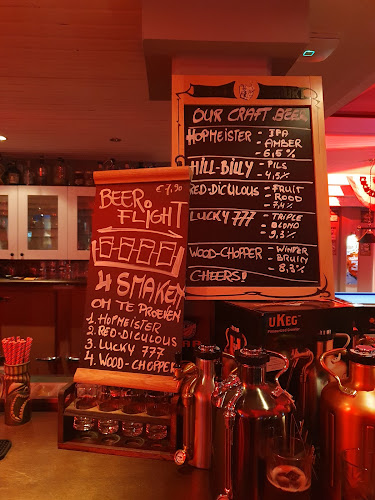 OUR CRAFT BEER
HOPMEISTER - IPA
- AMBER
- 6,5%
HILL-BILLY - PILS
- 4,5%
RED-DICULOUS - FRUIT
- ROOD
- 7,4%
LUCKY 777 - TRIPLE
- BLOND
- 9,3%
WOOD-CHOPPER - WINTER
- BRUIN
- 8,3%
CHEERS!
€ 7,90
BEER
FLIGHT
4 SMAKEN
OM TE PROEVEN
1. HOPMEISTER
2. RED-DICULOUS
3. LUCKY 777
4. WOOD-CHOPPER
UKEG